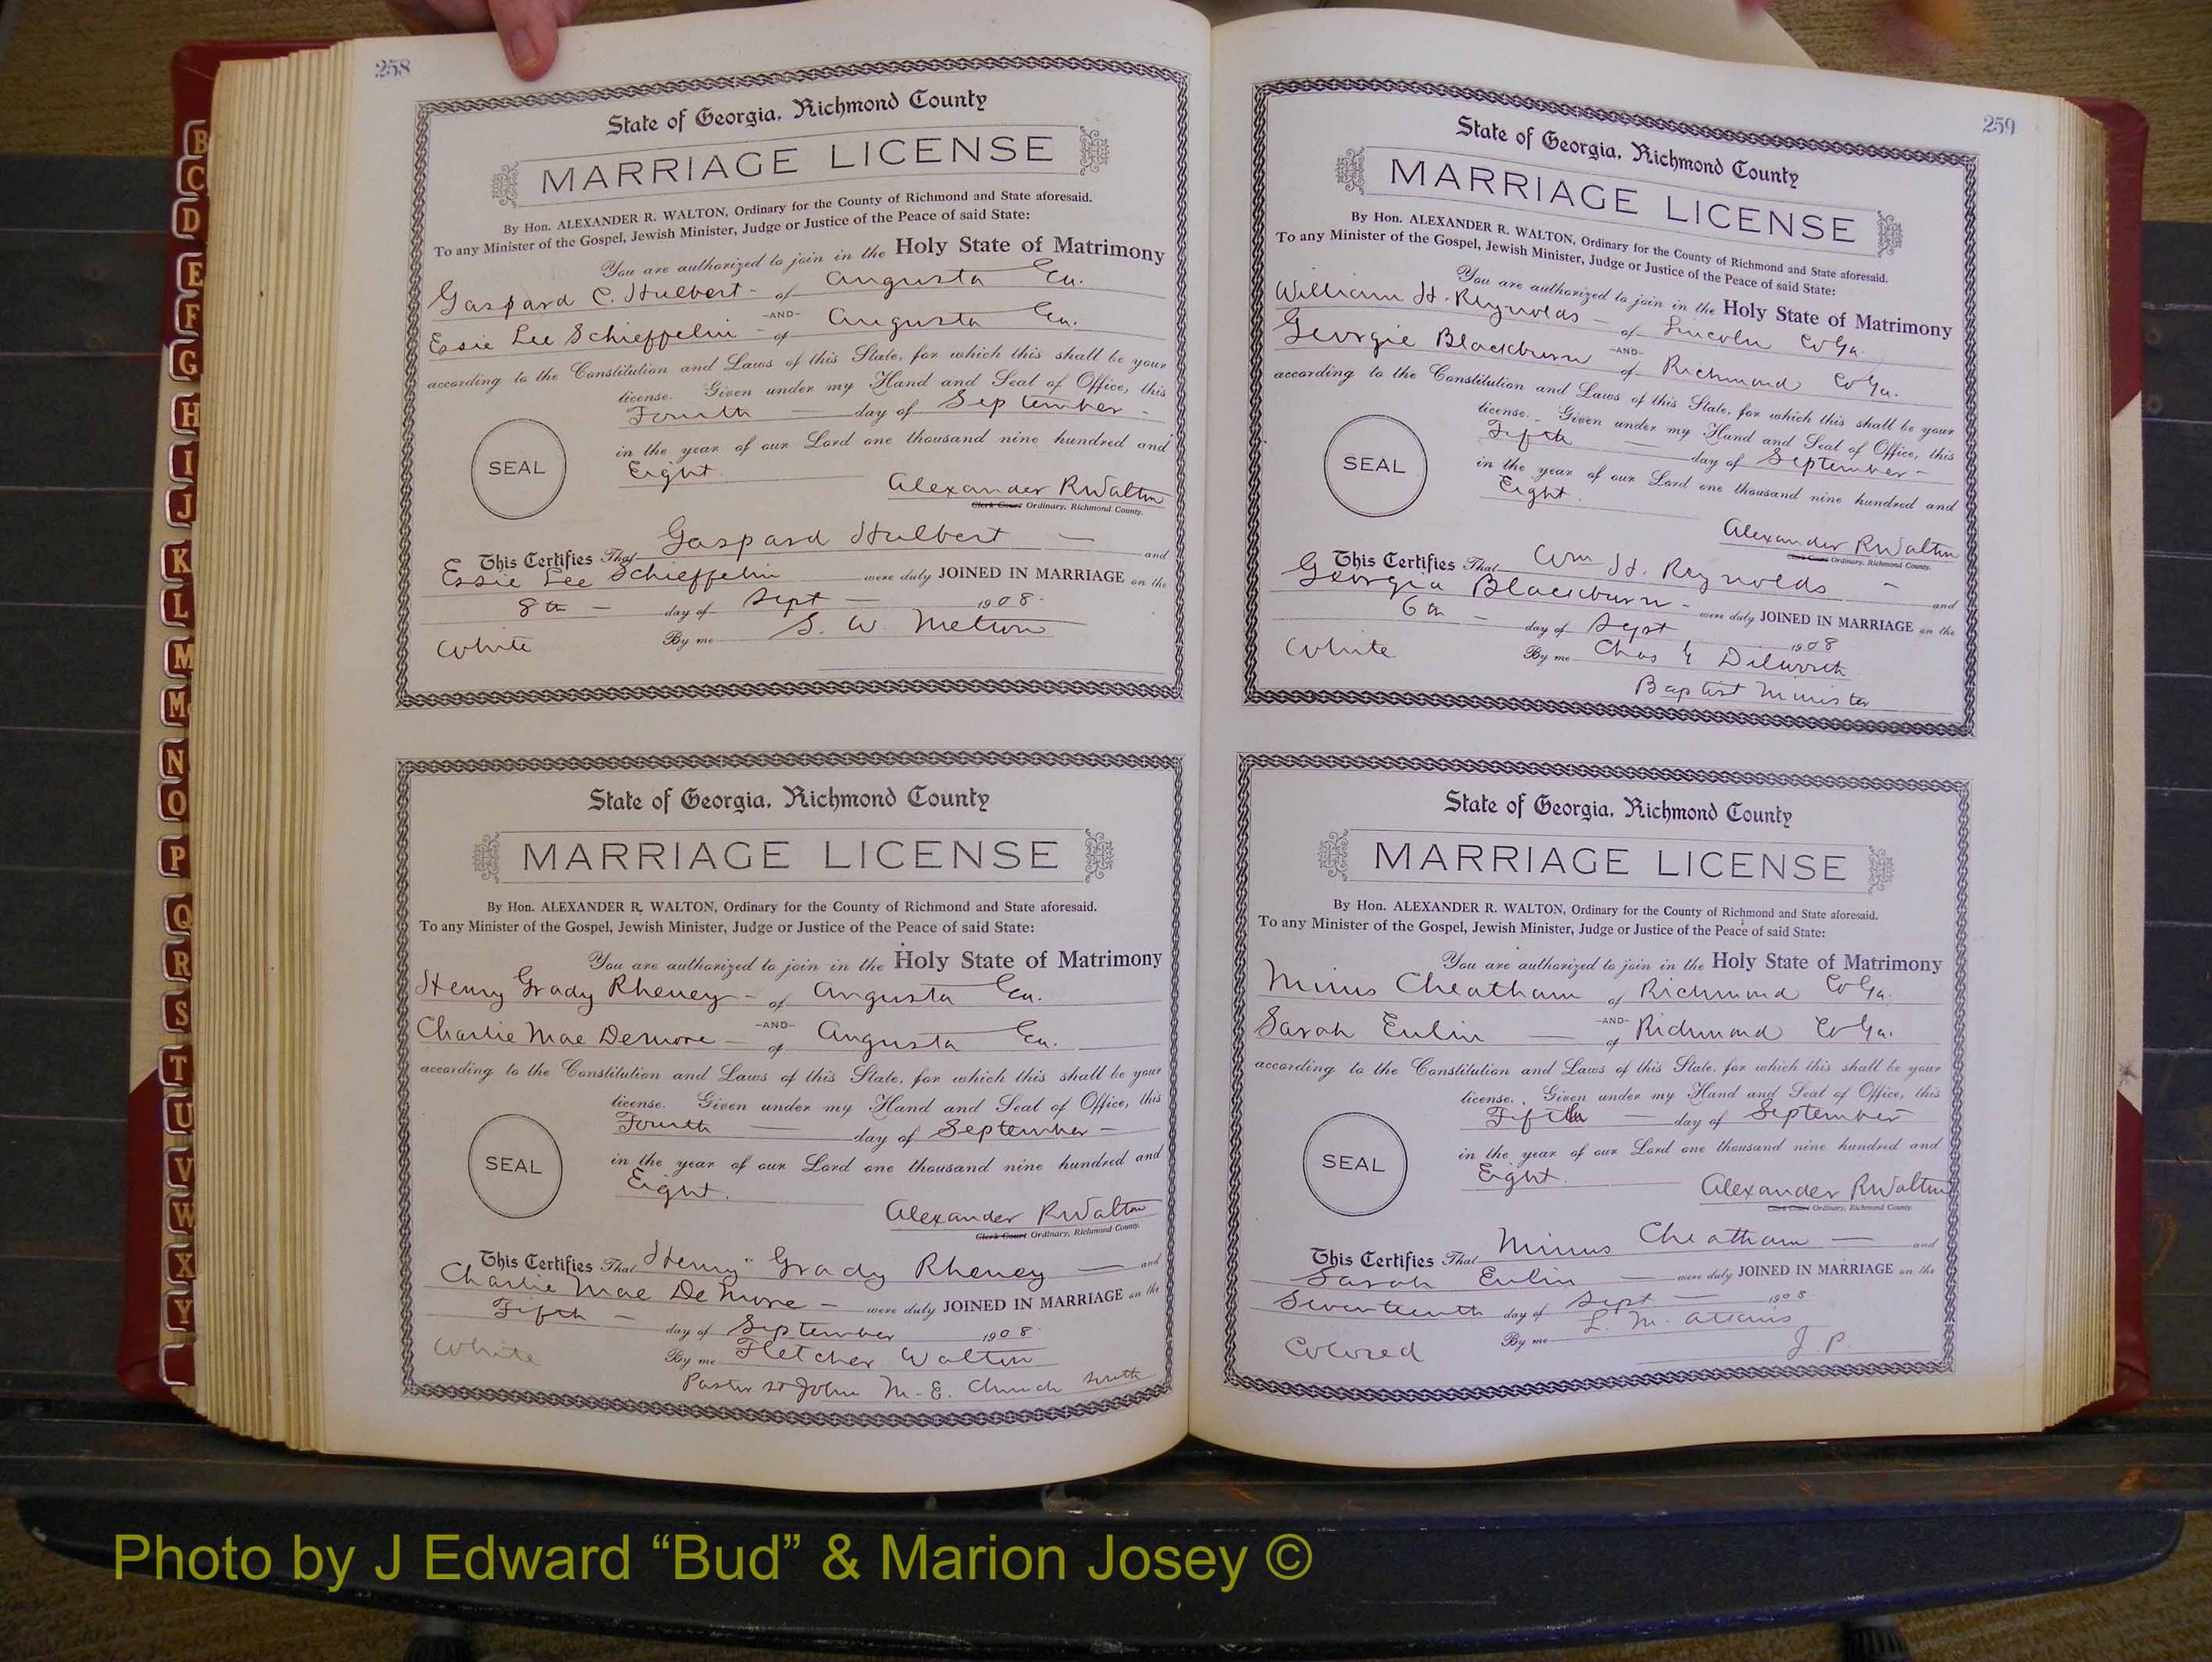 258
State of Georgia, Richmond County
MARRIAGE LICENSE
By Hon. ALEXANDER R. WALTON, Ordinary for the County of Richmond and State aforesaid.
To any Minister of the Gospel, Jewish Minister, Judge or Justice of the Peace of said State:
You are authorized to join in the Holy State of Matrimony
Gaspard C. Hulbert - of Augusta Ga.
-AND-
Essie Lee Schieffelin - of Augusta Ga.
according to the Constitution and Laws of this State, for which this shall be your
license. Given under my Hand and Seal of Office, this
Fourth — day of September -
in the year of our Lord one thousand nine hundred and
SEAL
Eight.
Alexander R Walton
Clerk Court Ordinary, Richmond County.
This Certifies That Gaspard Hulbert — and
Essie Lee Schieffelin were duly JOINED IN MARRIAGE on the
8th - day of Sept — 1908.
White By me S. W.
State of Georgia, Richmond County
MARRIAGE LICENSE
By Hon. ALEXANDER R. WALTON, Ordinary for the County of Richmond and State aforesaid.
To any Minister of the Gospel, Jewish Minister, Judge or Justice of the Peace of said State:
You are authorized to join in the Holy State of Matrimony
Henry Grady Rheney - of Augusta Ga.
-AND-
Charlie Mae Demore - of Augusta Ga.
according to the Constitution and Laws of this State, for which this shall be your
license. Given under my Hand and Seal of Office, this
Fourth — day of September -
in the year of our Lord one thousand nine hundred and
SEAL
Eight.
Alexander R Walton
Clerk Court Ordinary, Richmond County.
This Certifies That Henry Grady Rheney — and
Charlie Mae DeMore - were duly JOINED IN MARRIAGE on the
Fifth - day of September 1908.
White By me Fletcher Walton
Pastor St John M. E. Church South
259
State of Georgia, Richmond County
MARRIAGE LICENSE
By Hon. ALEXANDER R. WALTON, Ordinary for the County of Richmond and State aforesaid.
To any Minister of the Gospel, Jewish Minister, Judge or Justice of the Peace of said State:
You are authorized to join in the Holy State of Matrimony
William H. Reynolds - of Lincoln Co Ga.
-AND-
Georgie Blackburn of Richmond Co Ga.
according to the Constitution and Laws of this State, for which this shall be your
license. Given under my Hand and Seal of Office, this
Fifth — day of September -
in the year of our Lord one thousand nine hundred and
SEAL
Eight.
Alexander R Walton
Clerk Court Ordinary, Richmond County.
This Certifies That Wm H. Reynolds - and
Georgia Blackburn - were duly JOINED IN MARRIAGE on the
6th - day of Sept 1908
White By me Chas Dilworth
Baptist Minister
State of Georgia, Richmond County
MARRIAGE LICENSE
By Hon. ALEXANDER R. WALTON, Ordinary for the County of Richmond and State aforesaid.
To any Minister of the Gospel, Jewish Minister, Judge or Justice of the Peace of said State:
You are authorized to join in the Holy State of Matrimony
Minus Cheatham of Richmond Co Ga.
-AND-
Sarah Eulin — of Richmond Co Ga.
according to the Constitution and Laws of this State, for which this shall be your
license. Given under my Hand and Seal of Office, this
Fifth — day of September
in the year of our Lord one thousand nine hundred and
SEAL
Eight.
Alexander R Walton
Clerk Court Ordinary, Richmond County.
This Certifies That Minus Cheatham — and
Sarah Eulin — were duly JOINED IN MARRIAGE on the
Seventeenth day of Sept — 1908.
Colored By me L. M. Atkins
J. P.
B
C
D
E
F
G
H
I
J
K
L
M
Mc
N
O
P
Q
R
S
T
U
V
W
X
Y
Photo by J Edward “Bud” & Marion Josey ©